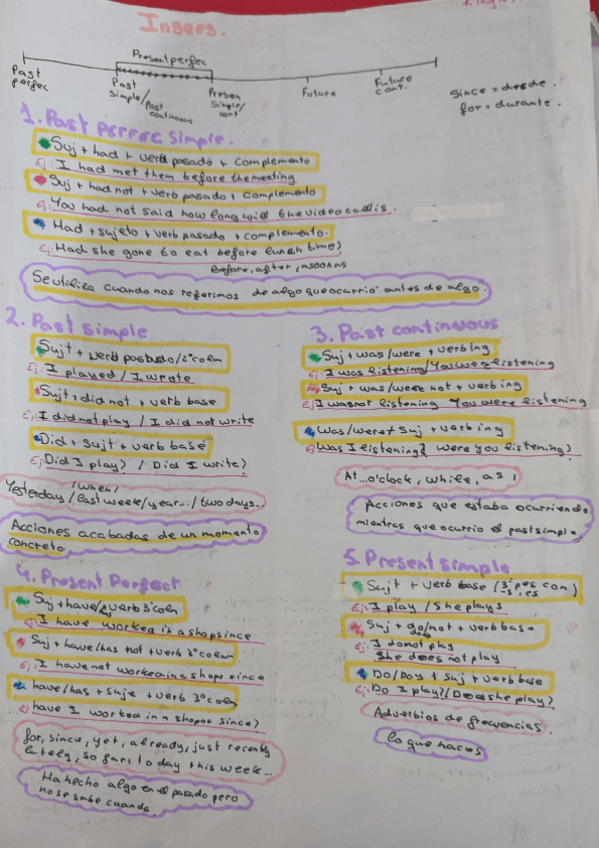 Ingees.
Present perfec
Past perfec
Past simple/Past continuous
Presen simple/cont
Future
Future cont.
Since = desde.
for = durante.
1. Past perfec simple.
Suj + had + verb pasado + complemento
Ej: I had met them before the meeting
Suj + had not + verb pasado + complemento
Ej: You had not said how long will the video call is.
Had + sujeto + verb pasado + complemento.
Ej: Had she gone to eat before lunch time?
Before, after, as soon as
Se utiliza cuando nos referimos de algo que ocurrio antes de algo.
2. Past simple
Sujt + verb pasado/2ºcolm
Ej: I played / I wrote
Sujt + did not + verb base
Ej: I did not play / I did not write
Did + sujt + verb base
Ej: Did I play? / Did I write?
/when/
Yesterday / last week / year.../ two days...
Acciones acabadas de un momento
concreto
3. Past continuous
Suj + was/were + verb ing
Ej: I was listening / You were listening
Suj + was/were not + verb ing
Ej: I was not listening You were listening
Was/were + Suj + verb ing
Was I listening? were you listening?
At...o'clock, while, as
Acciones que estaba ocurriendo
mientras que ocurrio el past simple.
4. Present Perfect
Suj + have/has verb 3ºcolm
Ej: I have worked in a shop since
Suj + have/has not + verb 3ºcolm
Ej: I have not worked in a shop since
have/has + Suje + verb 3ºcolm
Ej: have I worked in a shop since?
for, since, yet, already, just recently
lately, so far, to day this week...
Ha hecho algo en el pasado pero
no se sabe cuando.
5. Present simple
Sujt + verb base (3ª pes con)
-s, es
Ej: I play / She plays
Suj + do/not + verb base
does
Ej: I do not play
She does not play
Do/Doy + Suj + verb base
Ej: Do I play? / Does she play?
Adverbios de frecuencias.
lo que haces